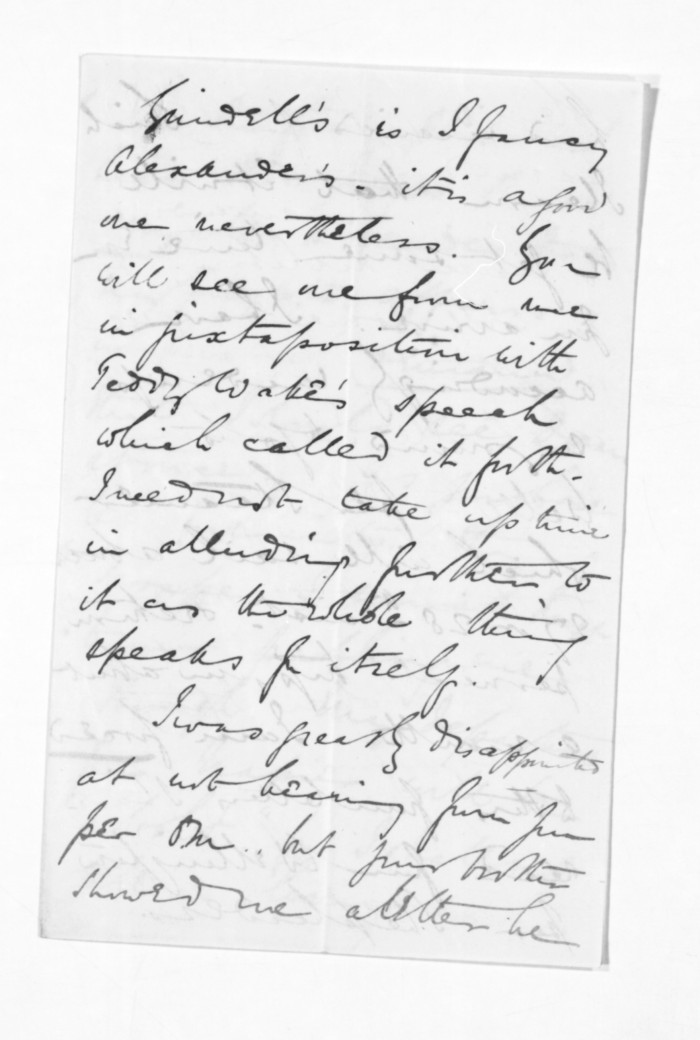 Grindell's is I fancy
Alexander's - it is a good
one nevertheless. You
will see one from me
in juxtaposition with
Teddy Wake's speech
which called it forth -
I need not take up time
in alluding further to
it as the whole thing
speaks for itself.
I was greatly disappointed
at not hearing from you
per but your brother
showed me a letter he